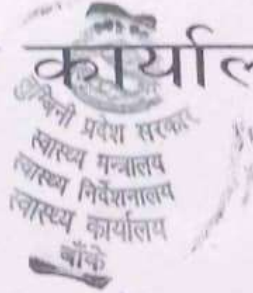 कार्याल
लुम्बिनी प्रदेश सरकार
स्वास्थ्य मन्त्रालय
स्वास्थ्य निर्देशनालय
स्वास्थ्य कार्यालय
बाँके